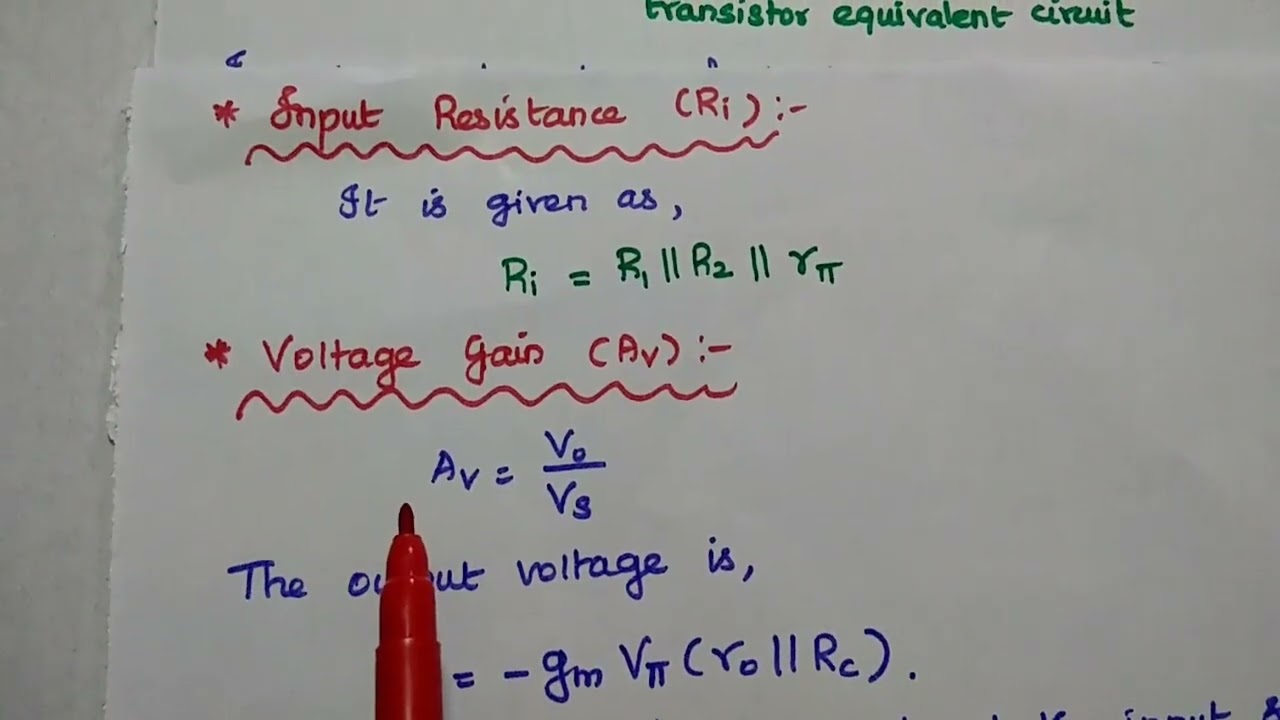 transistor equivalent circuit
* Input Resistance (Ri):-
It is given as,
Ri = R1 || R2 || rπ
* Voltage Gain (Av):-
Av = Vo / Vs
The output voltage is,
= -gm Vπ (ro || Rc).
input